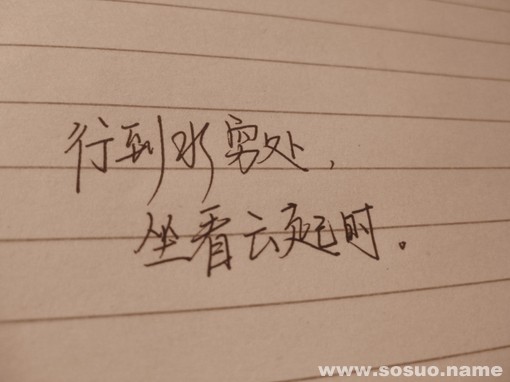 行到水穷处，
坐看云起时。
www.sosuo.name